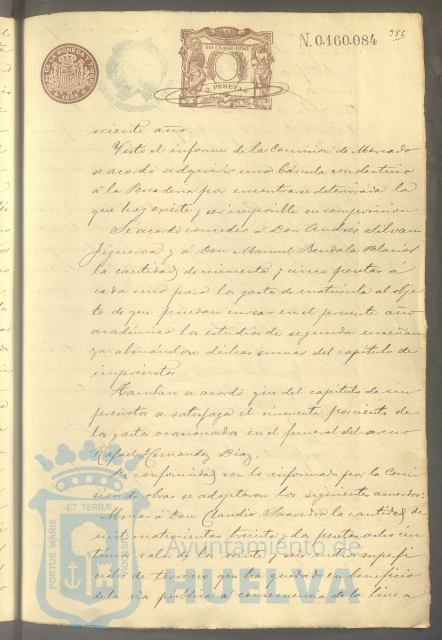 N. 0.160.084
386
rriente año.
Visto el informe de la Comision de Mercado
se acordó adquirir una báscula con destino
á la Pescaderia por encontrarse deteriorada la
que hoy existe y ser imposible su composicion
Se acordó conceder á Don Andrés Silvan
Figueroa y á Don Manuel Bendala Palacios
la cantidad de cincuenta y cinco pesetas á
cada uno para los gastos de matrícula al obje
to de que puedan cursar en el presente año
académico los estudios de segunda enseñan
za abonándose dichas sumas del capítulo de
imprevistos
Tambien se acordó que del capítulo de im
previstos se satisfaga el cincuenta por ciento de
los gastos ocasionados en el funeral del
Rafael Hernandez Diaz.
De conformidad con lo informado por la Comi
sion de obras se adoptaron los siguientes acuerdos:
Abonar á Don Claudio Saavedra la cantidad de
mil cuatrocientas treinta y dos pesetas ocho cen
timos valor de los metros superfi
ciales de terreno que ha quedado en beneficio
de la via publica á consecuencia de la linea
PORTUS MARIS
ET TERRAE
CUSTODIA
Ayuntamiento de
HUELVA